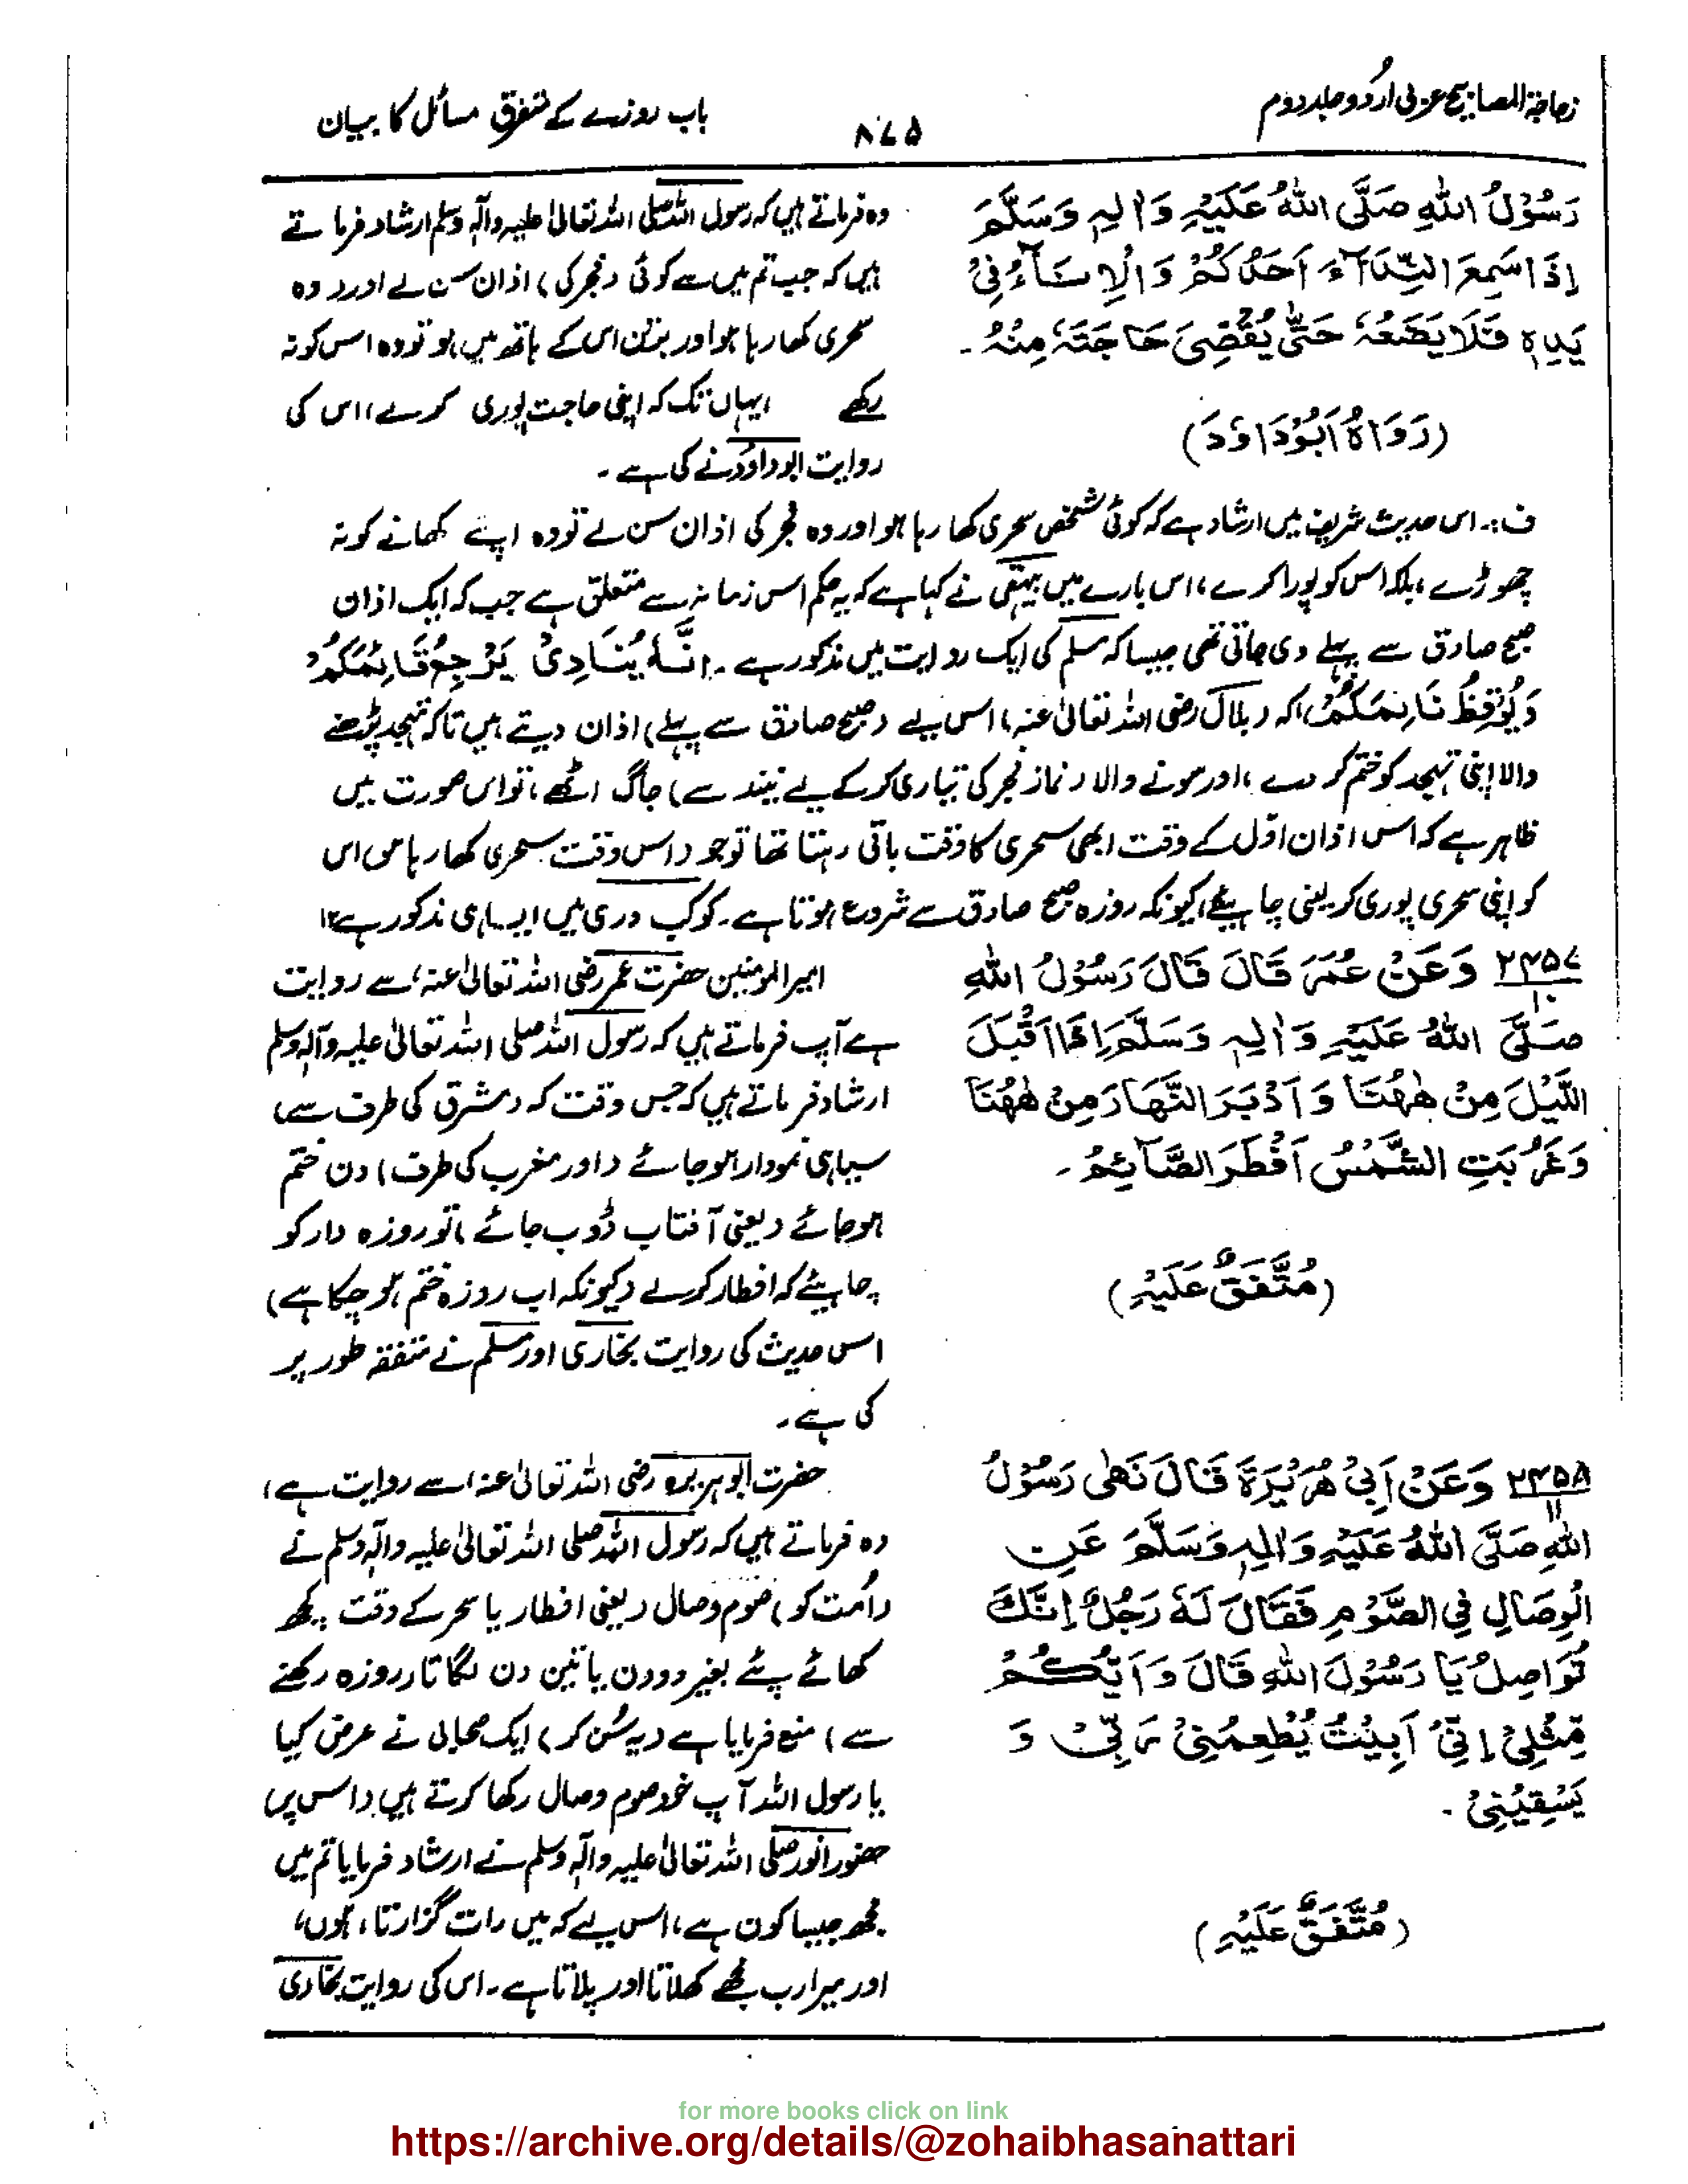 زجاجۃ المصابیح عربی اردو جلد دوم
۸۷۵
باب روزے کے متفرق مسائل کا بیان
رَسُوْلُ اللّٰهِ صَلَّى اللّٰهُ عَلَيْهِ وَاٰلِهٖ وَسَلَّمَ
اِذَا سَمِعَ النِّدَآءَ اَحَدُكُمْ وَالْاِنَآءُ فِيْ
يَدِهٖ فَلَا يَضَعُهٗ حَتّٰى يُقْضِيَ حَاجَتَهٗ مِنْهُ۔
(رَوَاهُ اَبُوْدَاوٗدَ)
وہ فرماتے ہیں کہ رسول اللہ صلی اللہ تعالیٰ علیہ وآلہٖ وسلم ارشاد فرماتے
ہیں کہ جب تم میں سے کوئی (فجر کی) اذان سن لے اور (وہ
سحری کھا رہا ہو اور برتن اس کے ہاتھ میں ہو تو وہ اس کو نہ
رکھے یہاں تک کہ اپنی حاجت پوری کرے، اس کی
روایت ابوداؤد نے کی ہے۔
ف:۔ اس حدیث شریف میں ارشاد ہے کہ کوئی شخص سحری کھا رہا ہو اور وہ فجر کی اذان سن لے تو وہ اپنے کھانے کو نہ
چھوڑے، بلکہ اس کو پورا کرے، اس بارے میں بیہقی نے کہا ہے کہ یہ حکم اس زمانہ سے متعلق ہے جب کہ ایک اذان
صبح صادق سے پہلے دی جاتی تھی جیسا کہ مسلم کی ایک روایت میں مذکور ہے۔ اِنَّهٗ يُنَادِيْ يَرْجِعُ قَائِمَكُمْ
وَيُوْقِظُ نَائِمَكُمْ، کہ (بلال رضی اللہ تعالیٰ عنہ) اس لیے (صبح صادق سے پہلے) اذان دیتے ہیں تاکہ تہجد پڑھنے
والا اپنی تہجد کو ختم کر دے، اور سونے والا (نماز فجر کی تیاری کرکے لیے نیند سے) جاگ اٹھے، تو اس صورت میں
ظاہر ہے کہ اس اذان اوّل کے وقت ابھی سحری کا وقت باقی رہتا تھا تو جو (اس وقت سحری کھا رہا ہو اس
کو اپنی سحری پوری کر لینی چاہیئے، کیونکہ روزہ صبح صادق سے شروع ہوتا ہے۔ کوکب دری میں ایسا ہی مذکور ہے ۱۲
۲۴۵۷
۱۰
وَعَنْ عُمَرَ قَالَ قَالَ رَسُوْلُ اللّٰهِ
صَلَّى اللّٰهُ عَلَيْهِ وَاٰلِهٖ وَسَلَّمَ اِذَا اَقْبَلَ
اللَّيْلَ مِنْ هٰهُنَا وَاَدْبَرَ النَّهَارَ مِنْ هٰهُنَا
وَغَرُبَتِ الشَّمْسُ اَفْطَرَ الصَّآئِمُ۔
(مُتَّفَقٌ عَلَيْهِ)
امیر المومنین حضرت عمر رضی اللہ تعالیٰ عنہ، سے روایت
ہے آپ فرماتے ہیں کہ رسول اللہ صلی اللہ تعالیٰ علیہ وآلہٖ وسلم
ارشاد فرماتے ہیں کہ جس وقت کہ (مشرق کی طرف سے)
سیاہی نمودار ہو جائے (اور مغرب کی طرف) دن ختم
ہو جائے (یعنی آفتاب ڈوب جائے) تو روزہ دار کو
چاہیئے کہ افطار کرلے (کیونکہ اب روزہ ختم ہو چکا ہے)
اس حدیث کی روایت بخاری اور مسلم نے متفقہ طور پر
کی ہے۔
۲۴۵۸
۱۱
وَعَنْ اَبِيْ هُرَيْرَةَ قَالَ نَهٰى رَسُوْلُ
اللّٰهِ صَلَّى اللّٰهُ عَلَيْهِ وَاٰلِهٖ وَسَلَّمَ عَنِ
الْوِصَالِ فِي الصَّوْمِ فَقَالَ لَهٗ رَجُلٌ اِنَّكَ
تُوَاصِلُ يَا رَسُوْلَ اللّٰهِ قَالَ وَاَيُّكُمْ
مِّثْلِيْ اِنِّيْ اَبِيْتُ يُطْعِمُنِيْ رَبِّيْ وَ
يَسْقِيْنِيْ۔
(مُتَّفَقٌ عَلَيْهِ)
حضرت ابوہریرہ رضی اللہ تعالیٰ عنہ، سے روایت ہے،
وہ فرماتے ہیں کہ رسول اللہ صلی اللہ تعالیٰ علیہ وآلہٖ وسلم نے
(اُمت کو) صوم وصال (یعنی افطار یا سحر کے وقت کچھ
کھائے پئے بغیر دو دن یا تین دن لگاتار روزہ رکھنے
سے) منع فرمایا ہے (یہ سُن کر) ایک صحابی نے عرض کیا
یا رسول اللہ آپ خود صوم وصال رکھا کرتے ہیں (اس پر)
حضور انور صلی اللہ تعالیٰ علیہ وآلہٖ وسلم نے ارشاد فرمایا تم میں
مجھ جیسا کون ہے، اس لیے کہ میں رات گزارتا ہوں،
اور میرا رب مجھے کھلاتا اور پلاتا ہے۔ اس کی روایت بخاری
for more books click on link
https://archive.org/details/@zohaibhasanattari